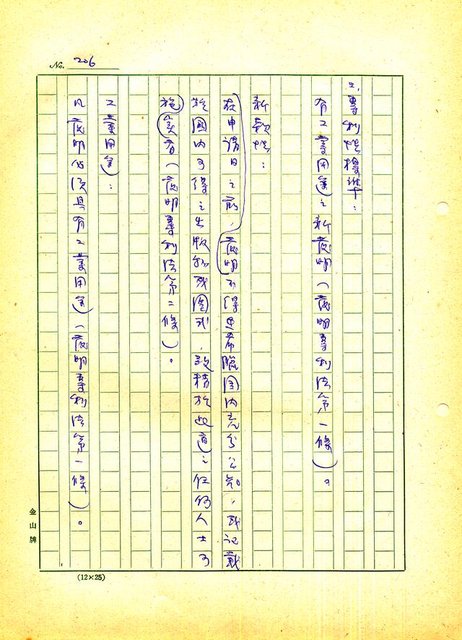 No. 206
2. 專利性標準:
有工業用途之新發明(發明專利法第一條)。
新穎性:
在申請日之前,發明不得已在韓國內充分公知,或記載
於國內可得之出版物或圖式,致精於此道之任何人士可
施實者(發明專利法第二條)。
工業用途:
凡發明必須具有工業用途(發明專利法第一條)。
金山牌
(12×25)